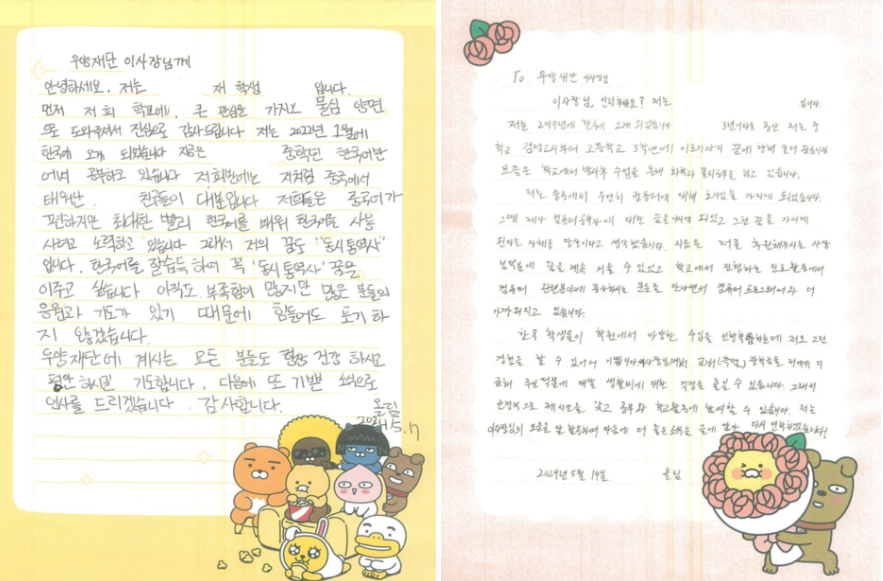 우양재단 이사장님께
안녕하세요. 저는 재학생 입니다.
먼저 저희 학교에 큰 관심을 가지고 물심 양면
으로 도와주셔서 진심으로 감사드립니다 저는 2022년 1월에
한국에 오게 되었습니다 지금은 중학단 한국어반
에서 공부하고 있습니다 저희반에는 저처럼 중국에서
태어난 친구들이 대부분입니다 저희들은 중국어가
편하지만 최대한 빨리 한국어를 배워 한국어를 사용
하려고 노력하고 있습니다 그래서 저의 꿈도 "동시통역사"
입니다. 한국어를 잘습득하여 꼭 '동시통역사' 꿈을
이루고 싶습니다 아직도 부족함이 많지만 많은 분들의
응원과 기도가 있기 때문에 힘들어도 포기하
지 않겠습니다.
우양재단에 계시는 모든 분들도 항상 건강 하시고
평안하시길 기도합니다. 다음에 또 기쁜 소식으로
인사를 드리겠습니다. 감사합니다.
올림
2024.5.17.
To. 우양재단 이사장님
이사장님, 안녕하세요? 저는 입니다.
저는 2019년에 한국에 오게 되었습니다 동안 저는 중
학교 검정고시부터 고등학교 3학년에 이르기까지
요즘은 학교에서 방과후 수업을 통해 화학과 물리공부를 하고 있습니다.
저는 중국에서 우연히 컴퓨터에 대해 호기심을 가지게 되었습니다.
그때 제가 컴퓨터공학사에 대한 꿈을 가지게 되었고 그런 꿈을 가지게
된다는 자체를 망상이라고 생각했습니다. 저를 후원해주시는 사랑
덕분에 꿈을 계속 키울 수 있었고 학교에서 진행하는 진로활동에서
컴퓨터 관련분야에 종사하시는 분들을 만나면서 컴퓨터프로그래머와 더
가까워지고 있습니다.
한국 학생들이 학원에서 다양한 수업을 저도 그런
경험을 할 수 있어서 장학금을 저에게 지
원해 주신 덕분에 매달 생활비에 대한 걱정을 줄일 수 있습니다. 그래서
안정적으로 공부와 학교활동에 참여할 수 있습니다. 저는
이사장님의 도움을 잘 활용하여 다음에 더 좋은 소식을 다시 연락하겠습니다!
2024년 5월 14일 올림